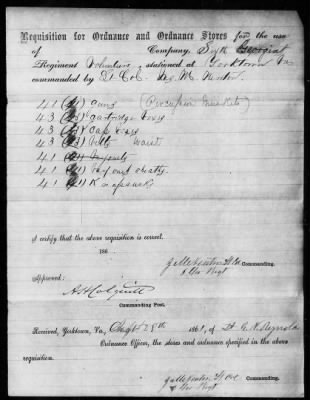 Requisition for Ordnance and Ordnance Stores for the use
of Company, Sixth Georgia
Regiment Volunteers, stationed at Yorktown Va
commanded by Lt Col. Jas. M. Newton
41 (41) Guns (Percussion Muskets)
43 (43) Cartridge boxes
43 (43) Cap boxes
43 (43) Belts waist
41 (41) Bayonets
41 (41) Bayonet sheaths
41 (41) Knapsacks
I certify that the above requisition is correct.
186
J M Newton Lt Col Commanding.
6 Geo Regt
Approved:
A H Colquitt
Commanding Post.
Received, Yorktown, Va., 28th 1861, of Lt Reynolds
Ordnance Officer, the stores and ordnance specified in the above
requisition.
J M Newton Lt Col Commanding.
6 Geo Regt